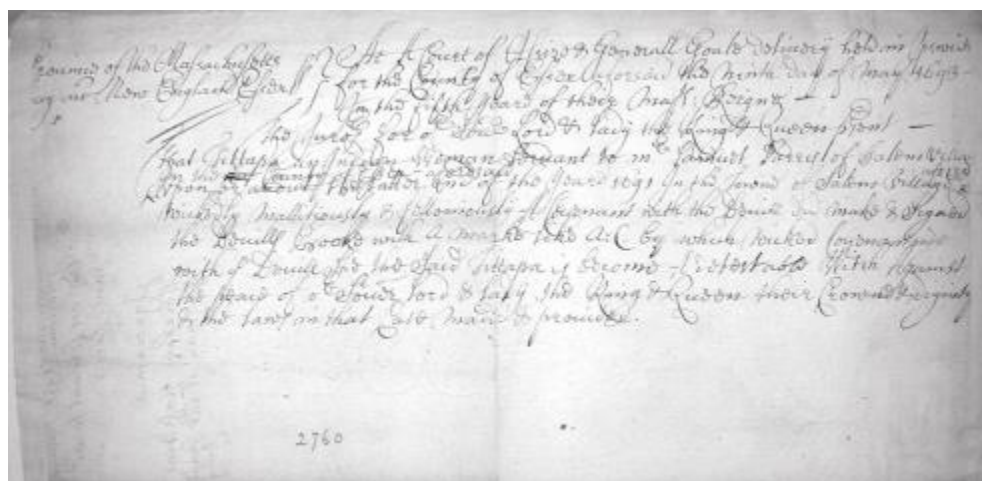 Province of the Massachusetts At A Court of Assize & Generall Goale delivery held in Ipswich
Bay in New England Essex ss for the County of Essex the Ninth day of May 1693
In the fifth year of their Maj Reigne
The Juro's for o Lord & Lady the King & Queen p'sent
That Tittapa an Indian Woman servant to mr Samuel Parris of Salem Village
In the County of Essex aforesaid
Upon or about the latter end of the year 1691 In the Towne of Salem Village
wickedly mallitiously & felloniously A Covenant with the Devill did make & Signed
the Devills Booke with A marke like A:C by which wicked Covenanting
with ye Devill she the said Tittapa is become A detestable Witch Against
the peace of o Lord & Lady the King & Queen their Crowne & dignity
& the laws in that Case made & provided.
2760